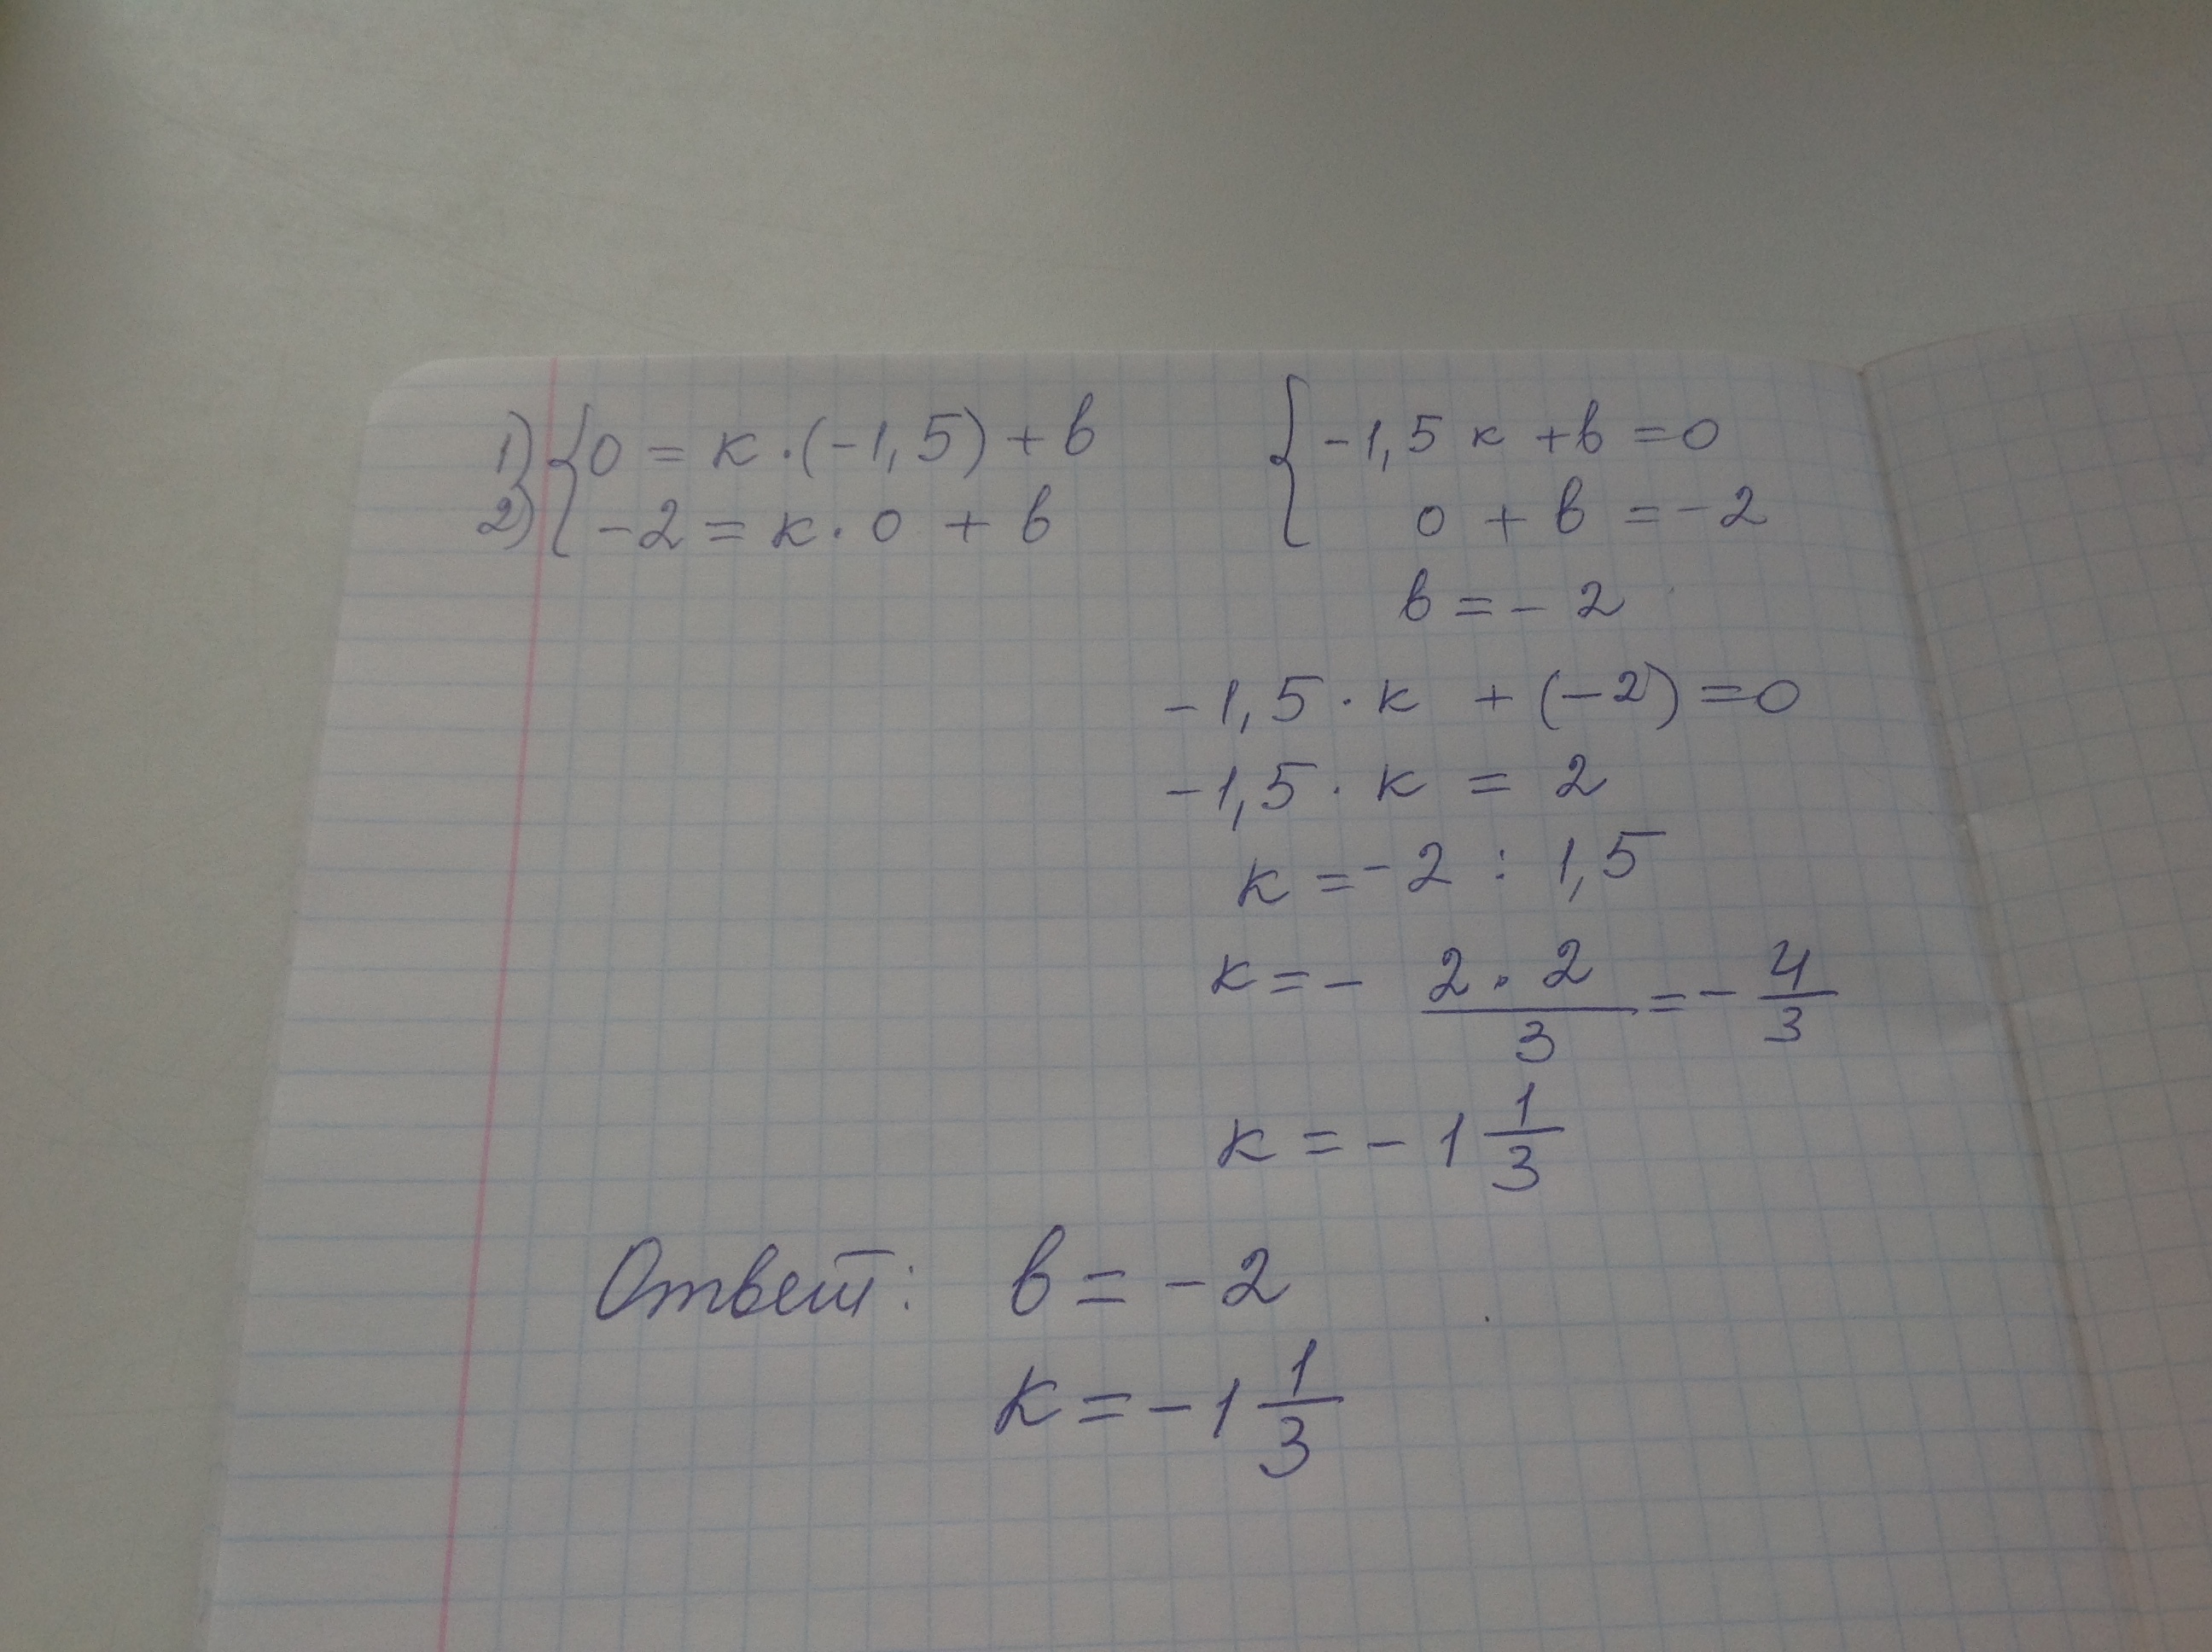 1) { 0 = к · (-1,5) + в
2) { -2 = к · 0 + в
{ -1,5 к + в = 0
0 + в = -2
в = - 2
-1,5 · к + (-2) = 0
-1,5 · к = 2
к = -2 : 1,5
к = - 2 · 2 / 3 = - 4/3
к = - 1 1/3
Ответ: в = -2
к = -1 1/3